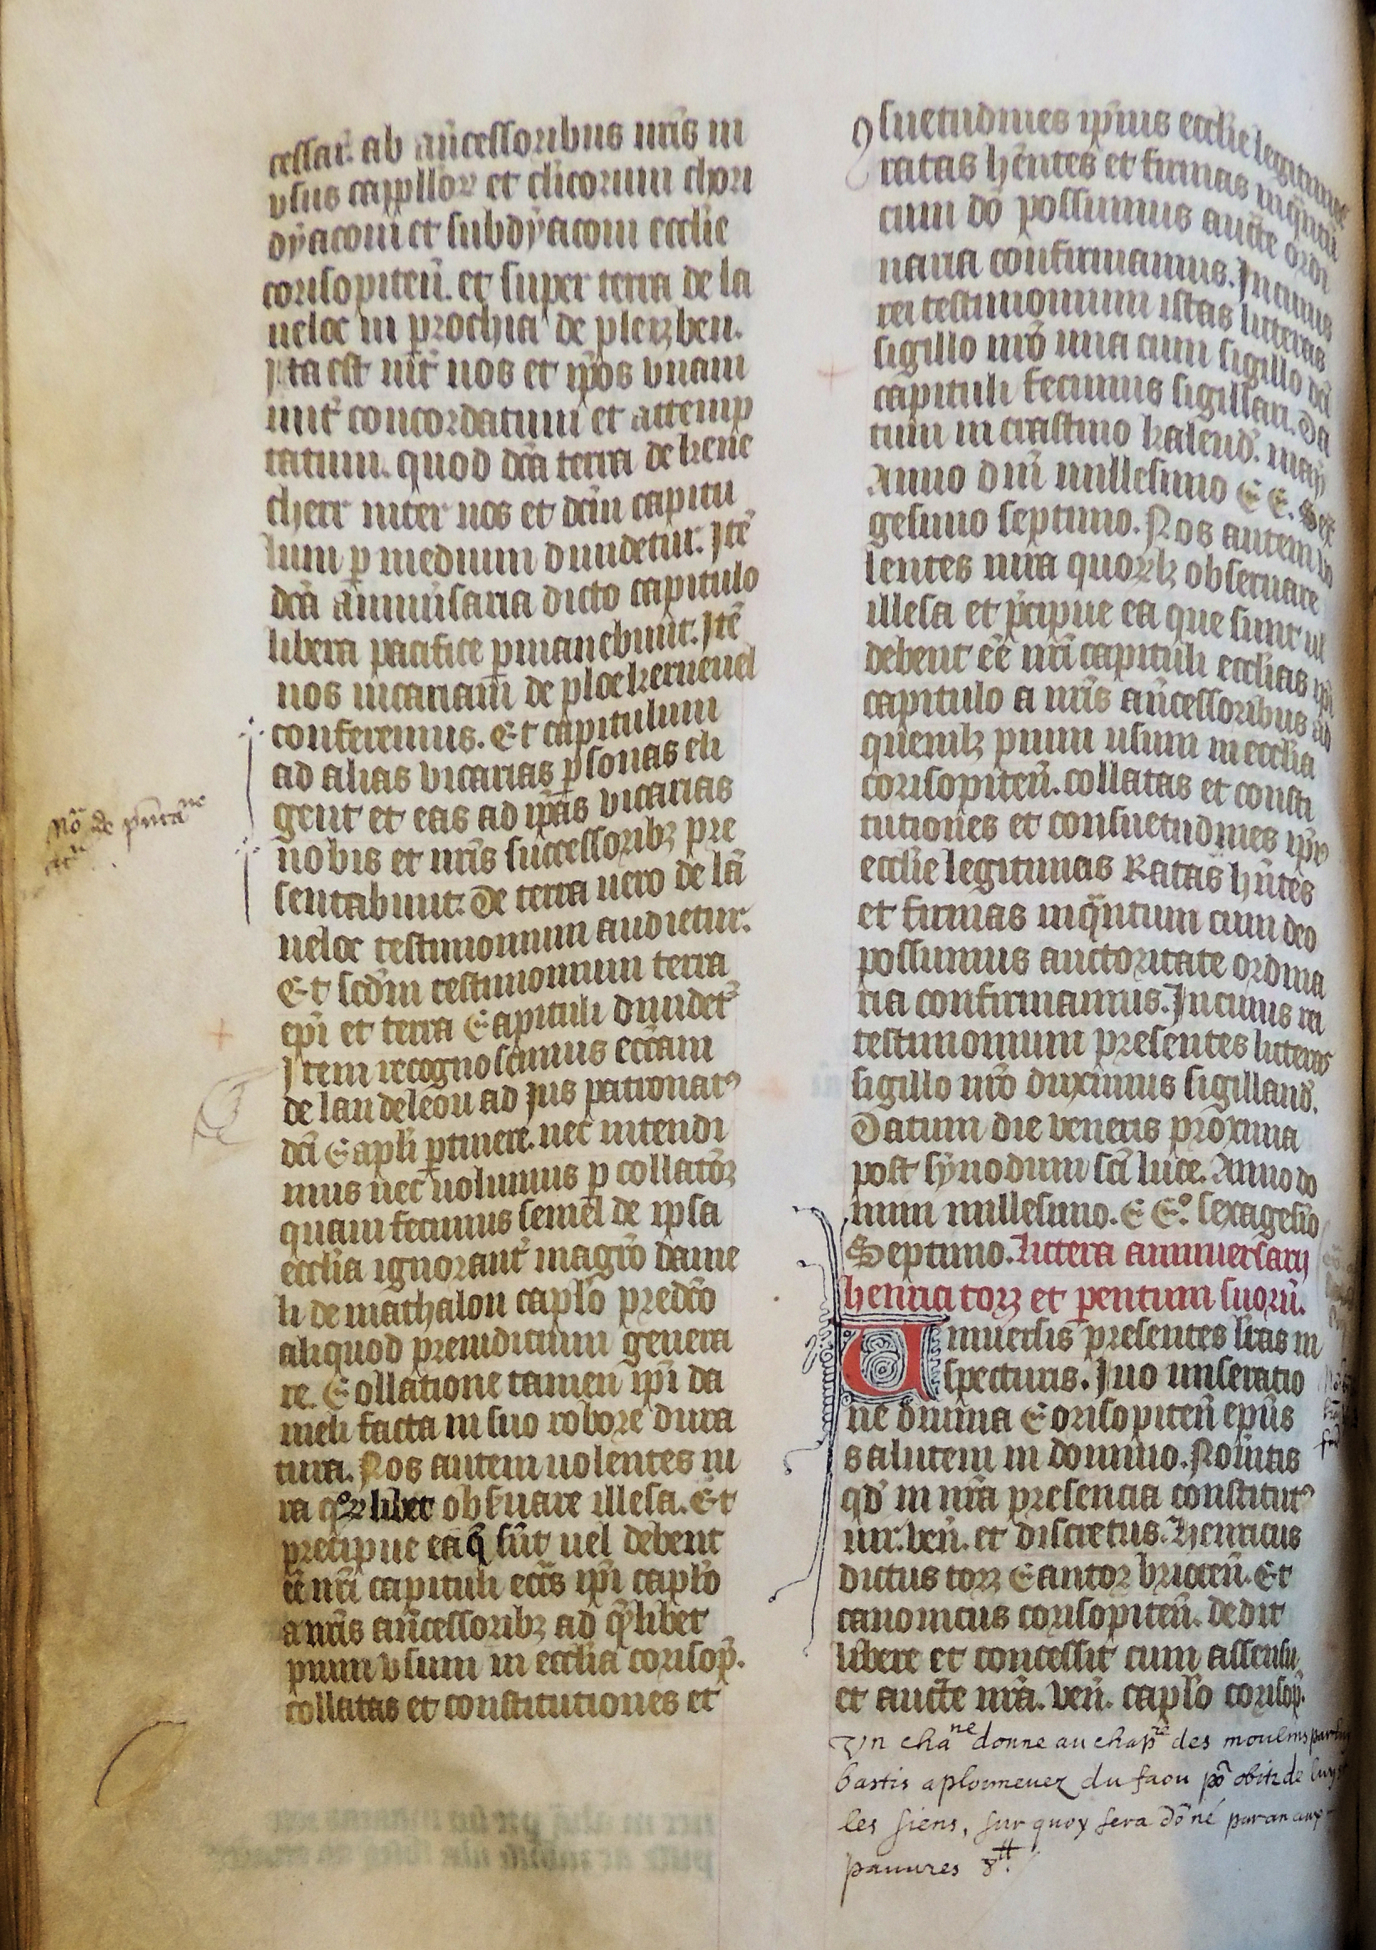 cessar̄ ab an̄cessoribus nr̄is in
vsus cappllor̄ et cl̄icorum chori
dyaconi et subdyaconi eccl̄ie
corisopiten̄. et super terra de la
neloc in prochia de pleizben.
Ita est int̄ nos et ip̄os vnani
mit̄ concordatum et attemp
tatum. quod dc̄a terra de kerie
cherr inter nos et dc̄m capitu
lum p̱ medium diuidetur. Itē
dc̄a anniūsaria dicto capitulo
libera pacifice p̱manebunt. Itē
nos uicariam de ploekerneuel
conferemus. Et capitulum
ad alias vicarias p̱sonas eli
gent et eas ad ip̄as vicarias
nobis et nr̄is successorib; pre
sentabunt. De terra uero de la
neloc testimonium audietur.
Et sc̄dm testimonium terra
ep̄i et terra Capituli diuidet̄
Item recognoscimus ecc̄am
de laudeleou ad Jus patronat᷒
dc̄i Capl̄i p̱tinere. nec intendi
mus nec uolumus p̱ collatōꝫ
quam fecimus semel de ipsa
eccl̄ia ignorant̄ magr̄o danie
li de mathalon capl̄o predc̄o
aliquod preiudicium genera
re. Collatione tamen ip̄i da
nieli facta in suo robore dura
tura. Nos autem uolentes iu
ra qͦꝝ libet obs̄uare illesa. Et
precipue ea q̄ sūt uel debent
ēē nr̄i capituli ecc̄as ip̄i capl̄o
a nr̄is an̄cessorib; ad q̄libet
pium vsum in eccl̄ia corisop̄.
collatas et constitutiones et
ꝯsuetudines ip̄ius eccl̄ie legitimas
ratas hēntes et firmas inq̄ntū
cum dō possumus auct̄e ordi
naria confirmamus. In cuius
rei testimonium istas litteras
sigillo nr̄o una cum sigillo dc̄i
capituli fecimus sigillari. Da
tum in crastino kalend̄. maij
Anno dn̄i millesimo C C. Sex
gesimo septimo. Nos autem uo
lentes iura quorꝫlꝫ obseruare
illesa et p̄cipue ea que sunt ul̄
debent ēē nr̄i capituli eccl̄ias ip̄i
capitulo a nr̄is an̄cessoribus ad
quemlꝫ pium usum in eccl̄ia
corisopiten̄. collatas et consti
tutiones et consuetudines ip̄i᷒
eccl̄ie legitimas Ratas hn̄tes
et firmas inq̄ntum cum deo
possumus auctoritate ordina
ria confirmamus. In cuius rei
testimonium presentes litteras
sigillo nr̄o duximus sigilland̄.
Datum die veneris proxima
post synodum sc̄i luce. Anno do
mini millesimo. C C.º sexagesīo
Septimo. Littera anniuersarij
henrici torꝫ et p̱entum suorū.
Uniuersis presentes l̄ras in
specturis. Iuo miseratio
ne diuina Corisopiten̄ ep̄us
salutem in domino. Noūitis
qd̄ in nr̄a presencia constitut᷒
uir. ven̄. et discretus. Henricus
dictus torꝫ Cantor briocen̄. Et
canonicus corisopiten̄. dedit
libere et concessit cum assensu
et auct̄e nr̄a. ven̄. capl̄o corisop̄.
Vn chaⁿᵉ donne au chapʳᵉ des moulins par luy
bastis a ploimeuez du faou pō obit de luy et
les siens, sur quoy sera dōné par an aux
pauures 8 ₶.